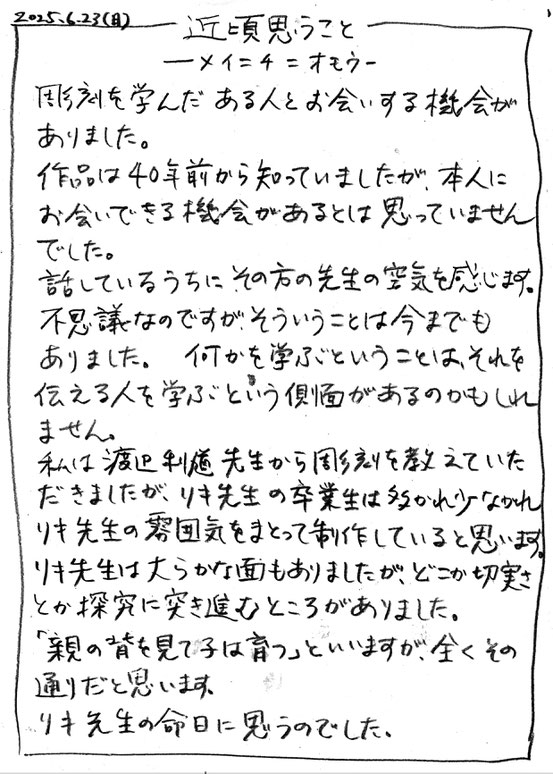 2025.6.23(月)
近頃思うこと
ーメイニチニオモウー
彫刻を学んだある人とお会いする機会が
ありました。
作品は40年前から知っていましたが、本人に
お会いできる機会があるとは思っていません
でした。
話しているうちにその方の先生の空気を感じます。
不思議なのですが、そういうことは今までも
ありました。 何かを学ぶということは、それを
伝える人を学ぶという側面があるのかもしれ
ません。
私は渡辺利馗先生から彫刻を教えていた
だきましたが、リキ先生の卒業生は多かれ少なかれ
リキ先生の雰囲気をまとって制作していると思います。
リキ先生は大らかな面もありましたが、どこか切実さ
とか探究に突き進むところがありました。
「親の背を見て子は育つ」といいますが、全くその
通りだと思います。
リキ先生の命日に思うのでした。